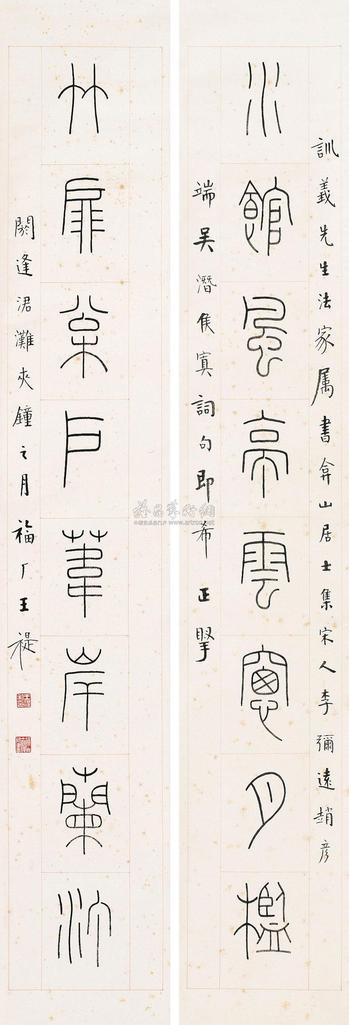 訓義先生法家属書弇山居士集宋人李彌遠趙彦
水館風亭雲窗月檻
端吴潛侯寘詞句即希正
竹扉枀户葦岸蘭
閼逢涒灘夾鐘之月福厂王禔